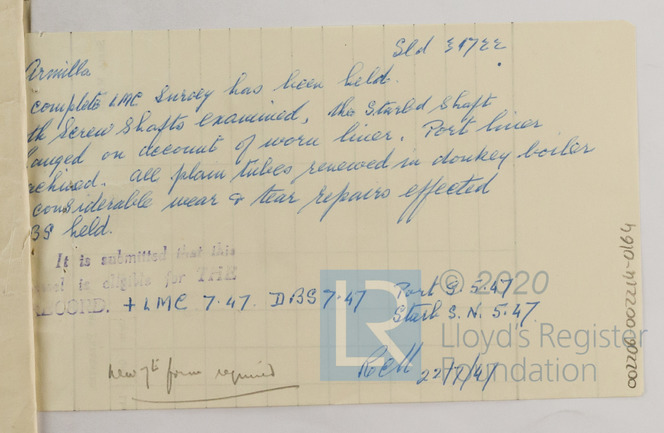 Sld 31722
Armilla
complete LMC Survey has been held.
th Screw Shafts examined, the Starbd Shaft
anged on account of worn liner. Port liner
achined. All plain tubes renewed in donkey boiler
considerable wear & tear repairs effected
BS held.
It is submitted that this
essel is eligible for THE
RECORD. + LMC 7.47. DBS 7.47 Port S 5.47
Starb S.N. 5.47.
22/7/47
new 7th form required
LR
© 2020
Lloyd's Register
Foundation
002200-002214-0164